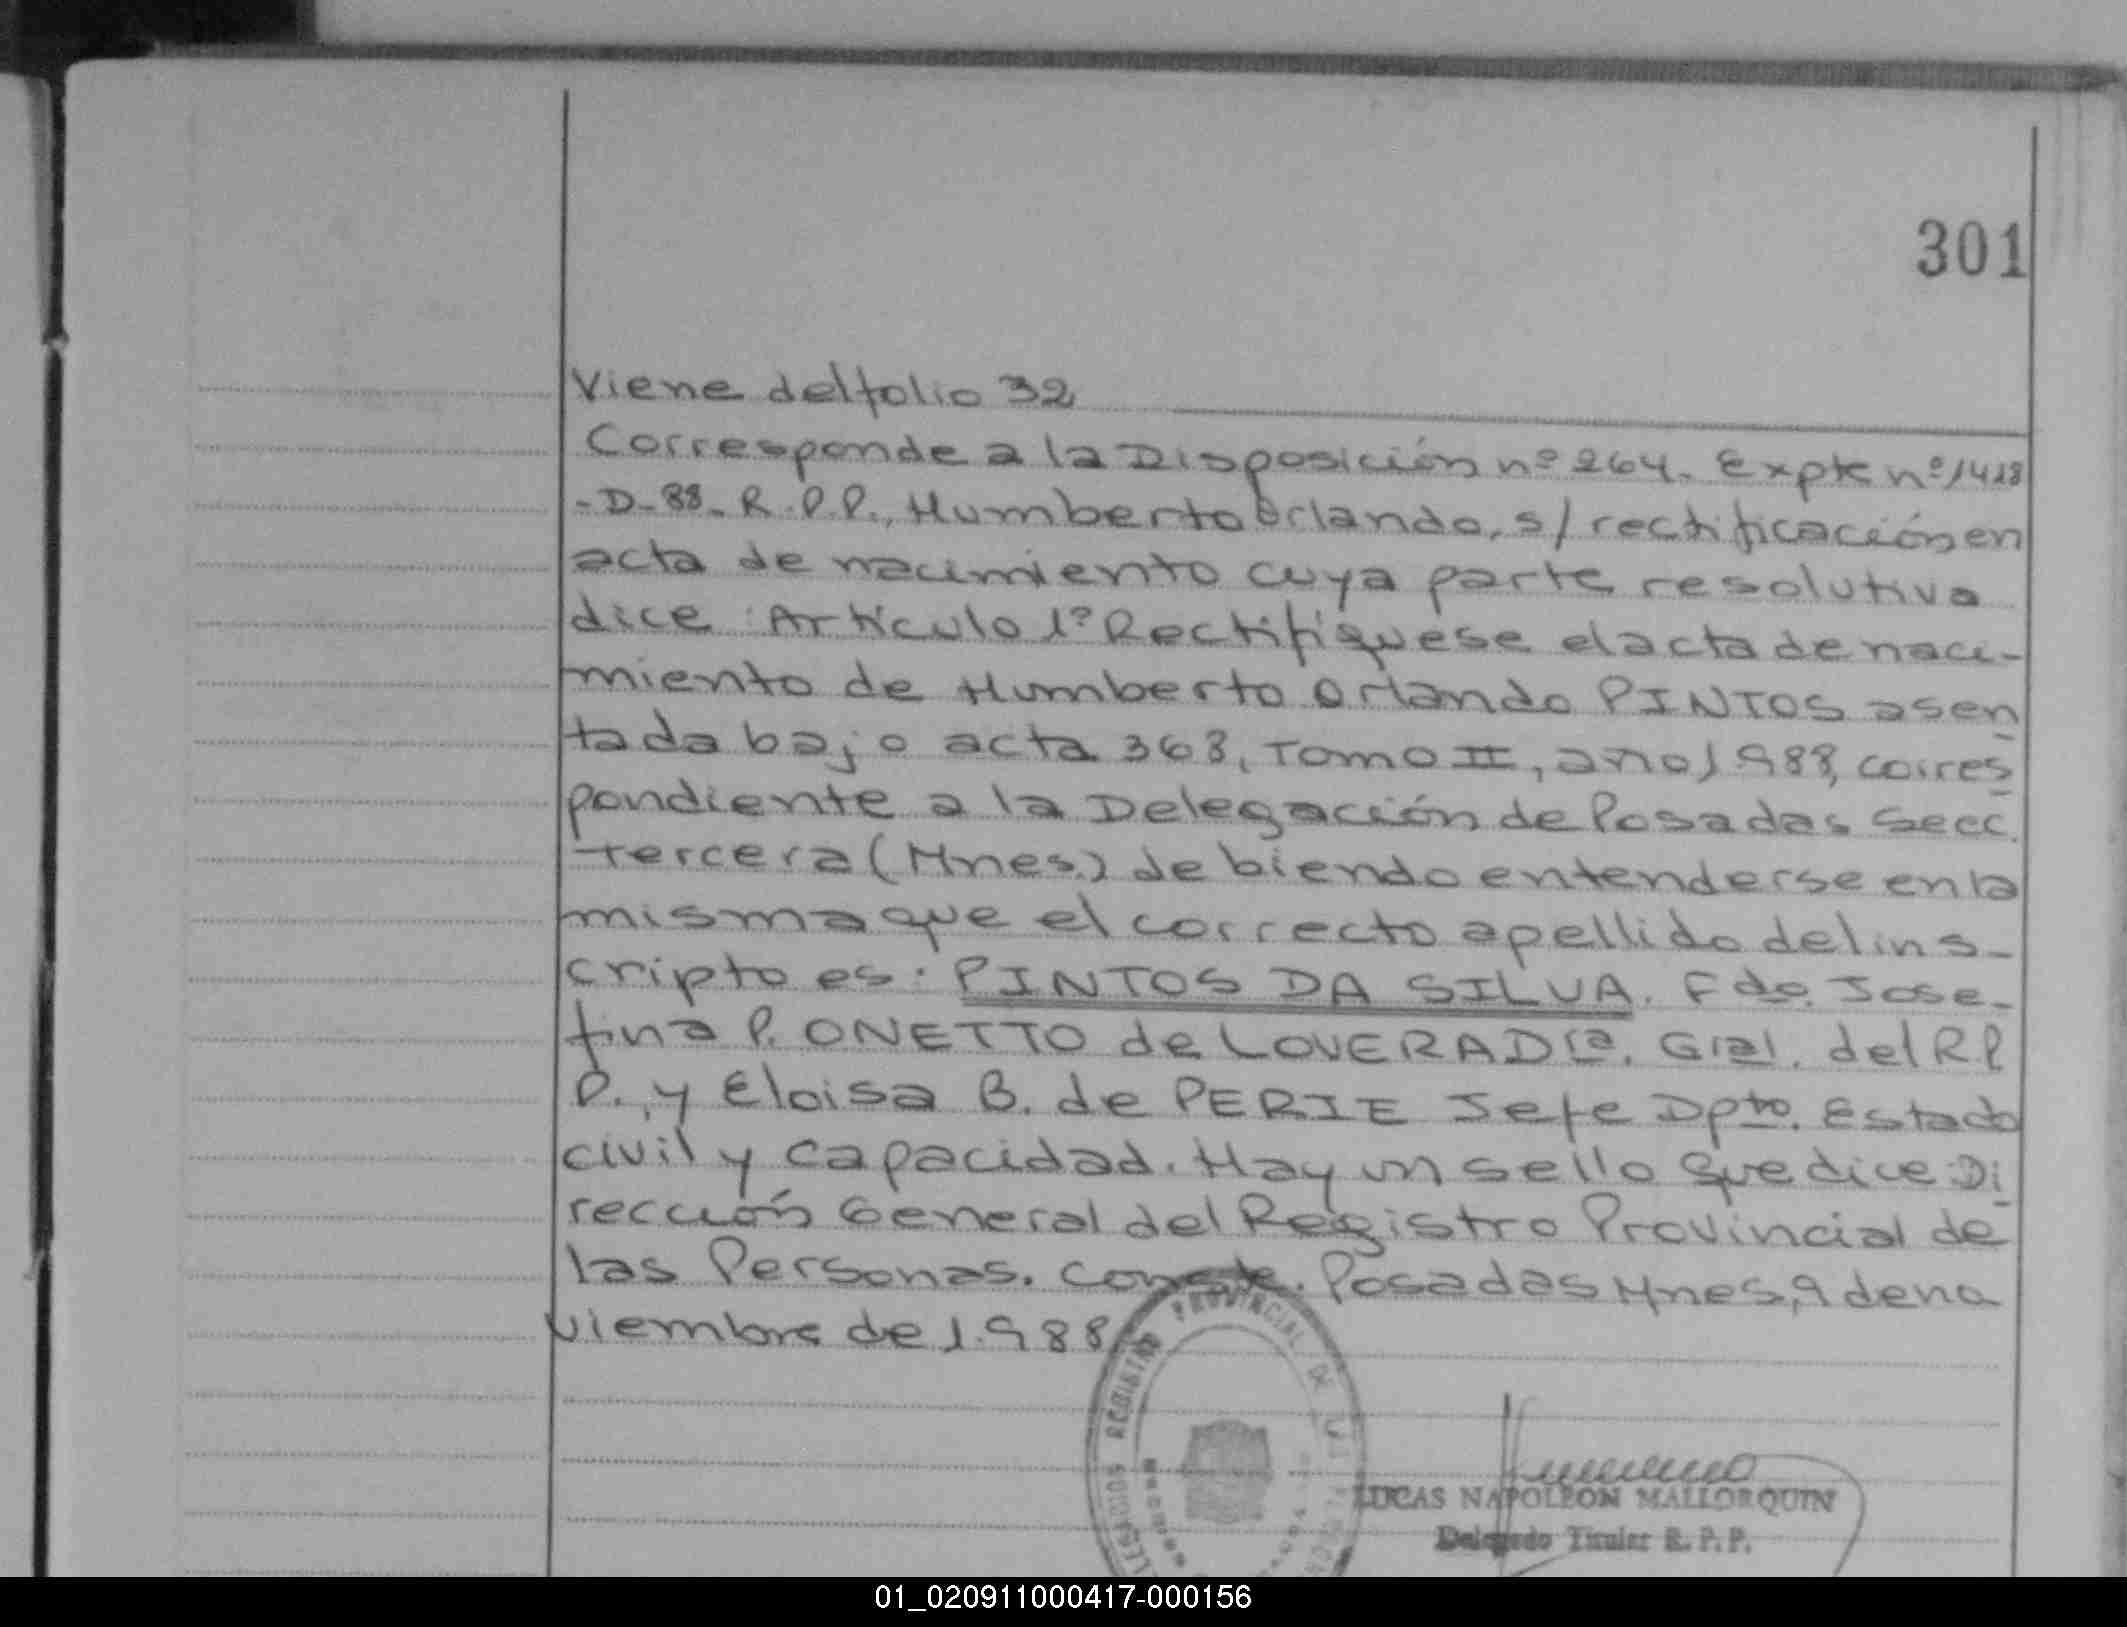 301
Viene del folio 32
Corresponde a la Disposición nº 264. Expte nº 1418
-D-88- R.P.P., Humberto Orlando, s/ rectificación en
acta de nacimiento cuya parte resolutiva
dice: Artículo 1º Rectifíquese el acta de naci-
miento de Humberto Orlando PINTOS asen
tada bajo acta 368, Tomo II, año 1988, corres
pondiente a la Delegación de Posadas Secc.
Tercera (Mnes.) debiendo entenderse en la
misma que el correcto apellido del ins-
cripto es: PINTOS DA SILVA. Fdo. Jose-
fina P. ONETTO de LOVERA Dra. Gral. del R.P
P., y Eloisa B. de PERIE Jefe Dpto. Estado
civil y capacidad. Hay un sello que dice: Di
rección General del Registro Provincial de
las Personas. Conste. Posadas Mnes, 9 de no
viembre de 1.988
REGISTRO PROVINCIAL DE LAS
LUCAS NAPOLEON MALLORQUIN
Delegado Titular R. P. P.
01_020911000417-000156